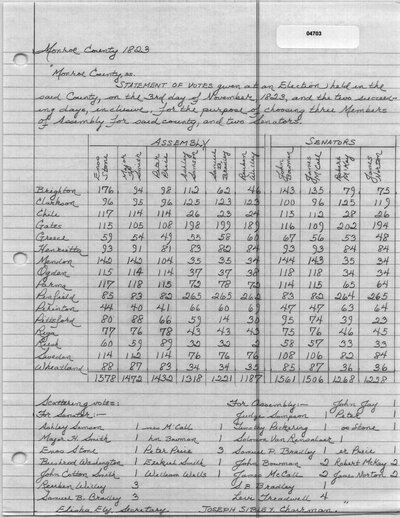 04703
Monroe County 1823
Monroe County, ss.
STATEMENT OF VOTES given at an Election, held in the
said County, on the 3rd day of November 1823, and the two succeed-
ing days, inclusive, for the purpose of choosing three Members
of Assembly for said county, and two Senators.
ASSEMBLY SENATORS
Enos Stone Major Smith Peter Price Ashley Samson Bradley Reuben Willey John Bowman James McCall Robert McKay James Norton
Brighton 176 94 98 112 62 46 143 135 79 75
Clarkson 96 95 96 125 123 123 100 96 125 119
Chili 117 114 114 26 23 24 115 112 28 26
Gates 115 105 108 198 199 189 116 109 202 194
Greece 59 54 49 55 58 60 67 56 53 48
Henrietta 93 91 81 83 82 84 93 93 84 84
Mendon 142 142 104 35 35 34 144 143 35 34
Ogden 115 114 114 37 37 38 118 118 34 34
Parma 117 118 115 72 78 72 114 115 65 64
Penfield 85 83 82 265 265 262 83 82 264 265
Perinton 44 40 41 66 60 69 47 47 63 64
Pittsford 80 88 66 59 14 30 95 74 39 23
Riga 77 76 78 43 43 43 75 76 46 45
Rush 60 59 89 32 32 2 58 57 33 33
Sweden 114 112 114 76 76 76 108 106 82 84
Wheatland 88 87 83 34 34 35 85 87 36 36
1578 1472 1432 1318 1221 1187 1561 1506 1268 1228
Scattering votes:
For Senator:— For Assembly:— John Jay 1
Judge Sampson 1 Peter 1
Ashley Samson 1 McCall 1 Timothy Pickering 1 Stone 1
Major H. Smith 1 Bowman 1 Solomon Van Rensselaer 1
Enos Stone 1 Peter Price 3 Samuel P. Bradley 1 Price 1
Bushrod Washington 1 Ezekiel Smith 1 John Bowman 2 Robert McKay 2
John Cotton Smith 1 William Walls 1 James McCall 2 James Norton 2
Reuben Willey 3 S.E. Bradley
Samuel B. Bradley 3 Levi Treadwell 4
Elisha Ely, Secretary JOSEPH SIBLEY, Chairman.